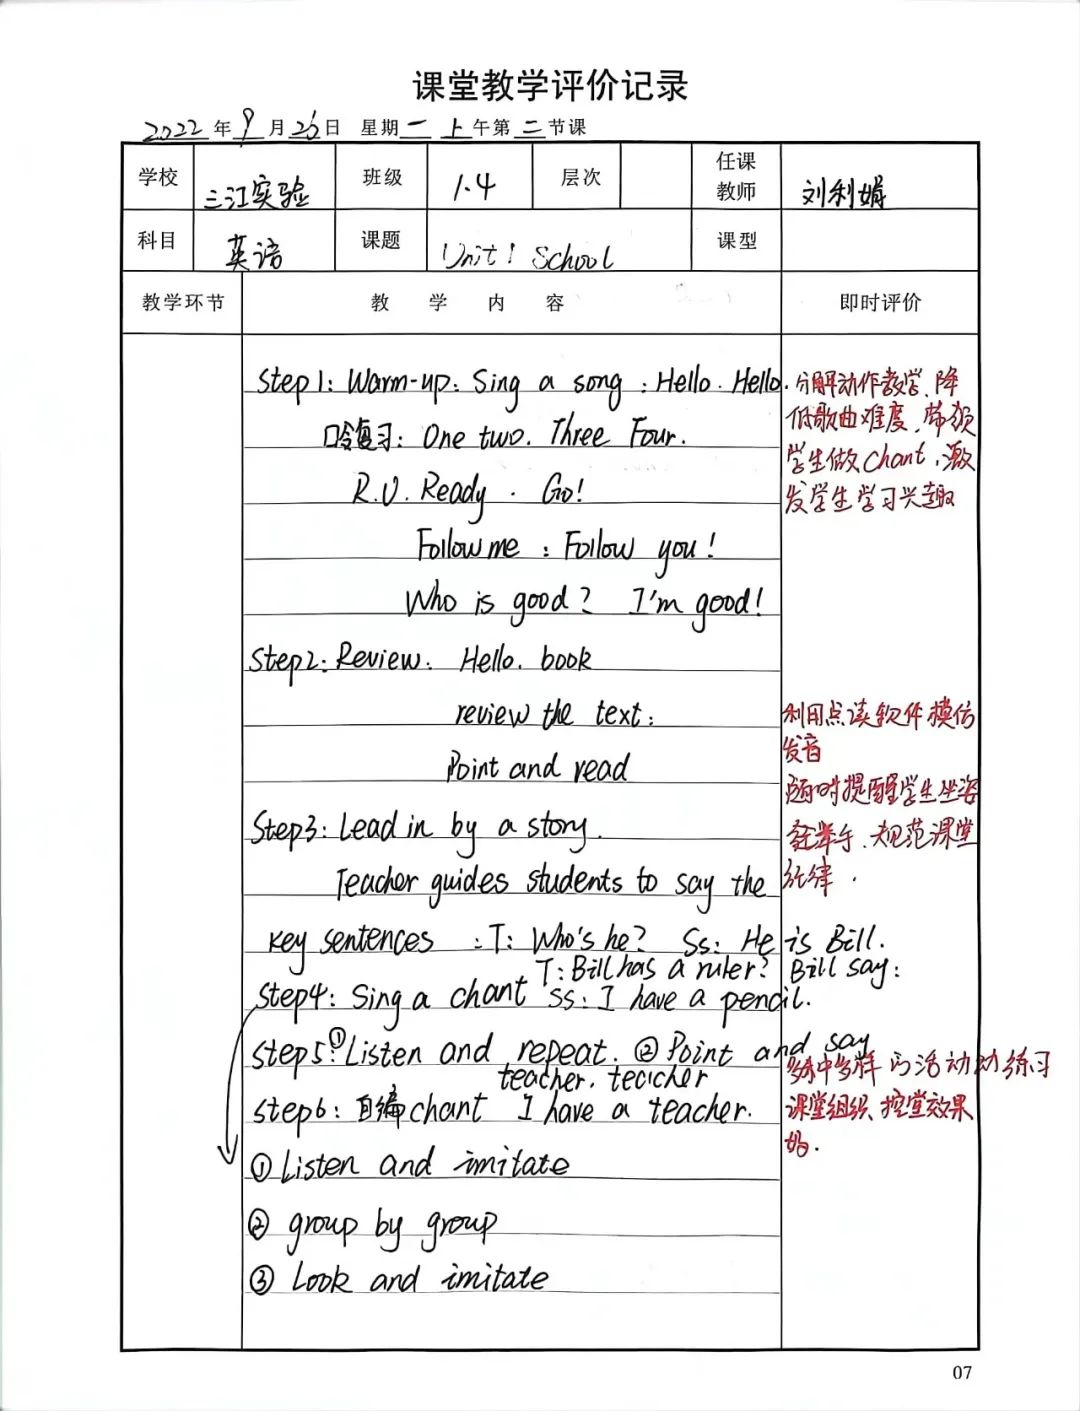 课堂教学评价记录
2022年9月26日 星期一 上午第二节课
学校 三江实验 班级 1.4 层次 任课教师 刘利娟
科目 英语 课题 Unit1 School 课型
教学环节 教学内容 即时评价
Step1: Warm-up: Sing a song: Hello. Hello.
口令复习: One two. Three Four.
R.U. Ready. Go!
Follow me: Follow you!
Who is good? I'm good!
Step2: Review. Hello. book
review the text:
Point and read
Step3: Lead in by a story.
Teacher guides students to say the
key sentences: T: Who's he? Ss: He is Bill.
T: Bill has a ruler? Bill say:
Step4: Sing a chant Ss: I have a pencil.
Step5: ①Listen and repeat. ②Point and say
teacher. teacher
Step6: 自编chant I have a teacher.
①Listen and imitate
② group by group
③ Look and imitate
分解动作教学、降
低歌曲难度,带领
学生做chant,激
发学生学习兴趣
利用点读软件模仿
发音
随时提醒学生坐姿
举手、规范课堂
纪律.
多样的活动练习
课堂组织、控堂效果
好.
07